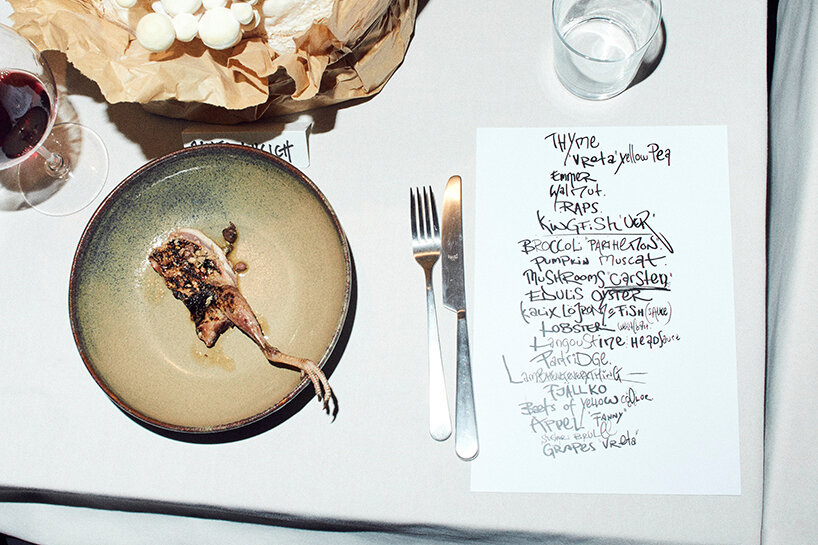 THYME
Vreta' yellow Pea
EMMER
Walnut.
RAPS.
KINGFISH 'UER'
BROCCOLI
PUMPKIN MUSCAT
MUSHROOMS 'Carsten'
EDULIS OYSTER
KALIX FISH (SAUCE)
LOBSTER
Langoustine HEAD Sauce
PatriDGE.
LAMB
FJÄLLKO
Beets of yellow COLOR
APPEL "FANNY"
SUGAR BRULEE
GRAPES "Vreta"